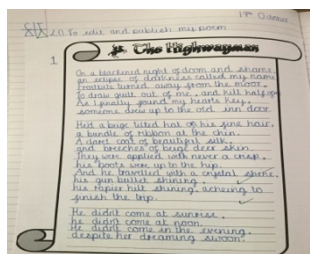 17th October
L.O. To edit and publish my poem
1. The Highwayman
On a blackened night of doom and shame,
an eclipse of darkness called my name
turned away from the moor,
To draw guilt out of me, and kill half of
As I finally found my hearts key,
someone drew up to the old inn door
He'd a beige tilted hat on his fine hair,
a bundle of ribbon at the chin.
A dark coat of beautiful silk
and breeches of beige deer skin.
They were applied with never a crisp,
his boots were up to the hip.
And he travelled with a crystal shine.
his gun bullet shining,
his rapier hilt shining, acheing to
finish the trip.
He didnt come at sunrise.
he didnt come at noon.
He didnt come in the evening,
despite her dreaming swoon.